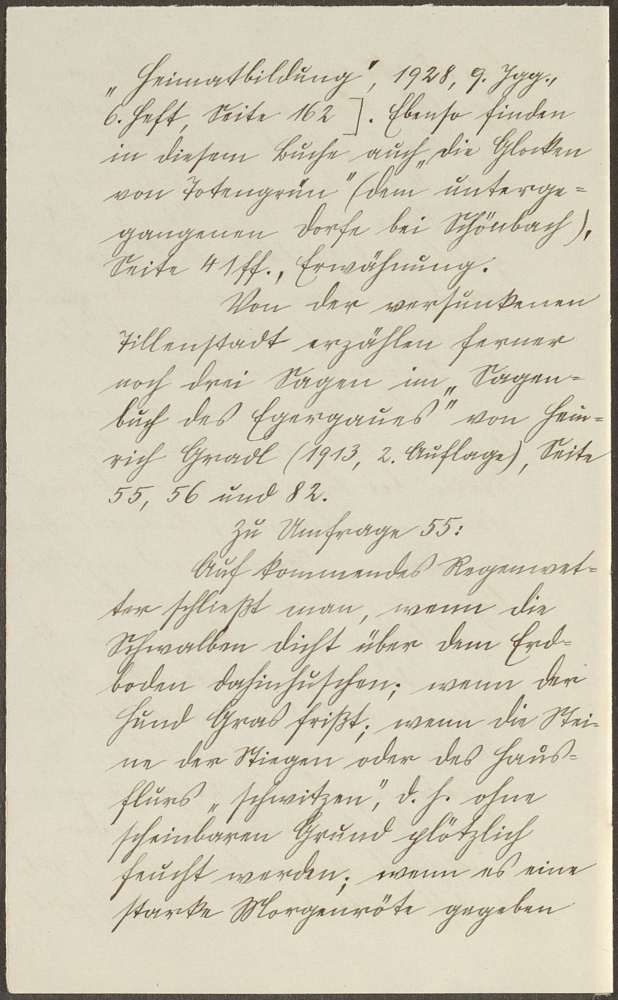 „Heimatbildung", 1928, 9. Jgg.,
6. Heft, Seite 162]. Ebenso finden
in diesem Buche auch „die Glocken
von Totengrün" (dem unterge=
gangenen Dorfe bei Schönbach),
Seite 41ff., Erwähnung.
Von der versunkenen
Tillenstadt erzählen ferner
noch drei Sagen im „Sagen=
buch des Egergaues" von Hein=
rich Gradl (1913, 2. Auflage), Seite
55, 56 und 82.
Zu Umfrage 55:
Auf kommendes Regenwet=
ter schließt man, wenn die
Schwalben dicht über dem Erd=
boden dahinhuschen; wenn der
Hund Gras frißt; wenn die Stei=
ne der Stiegen oder des Haus=
flurs „schwitzen", d. h. ohne
scheinbaren Grund plötzlich
feucht werden; wenn es eine
starke Morgenröte gegeben